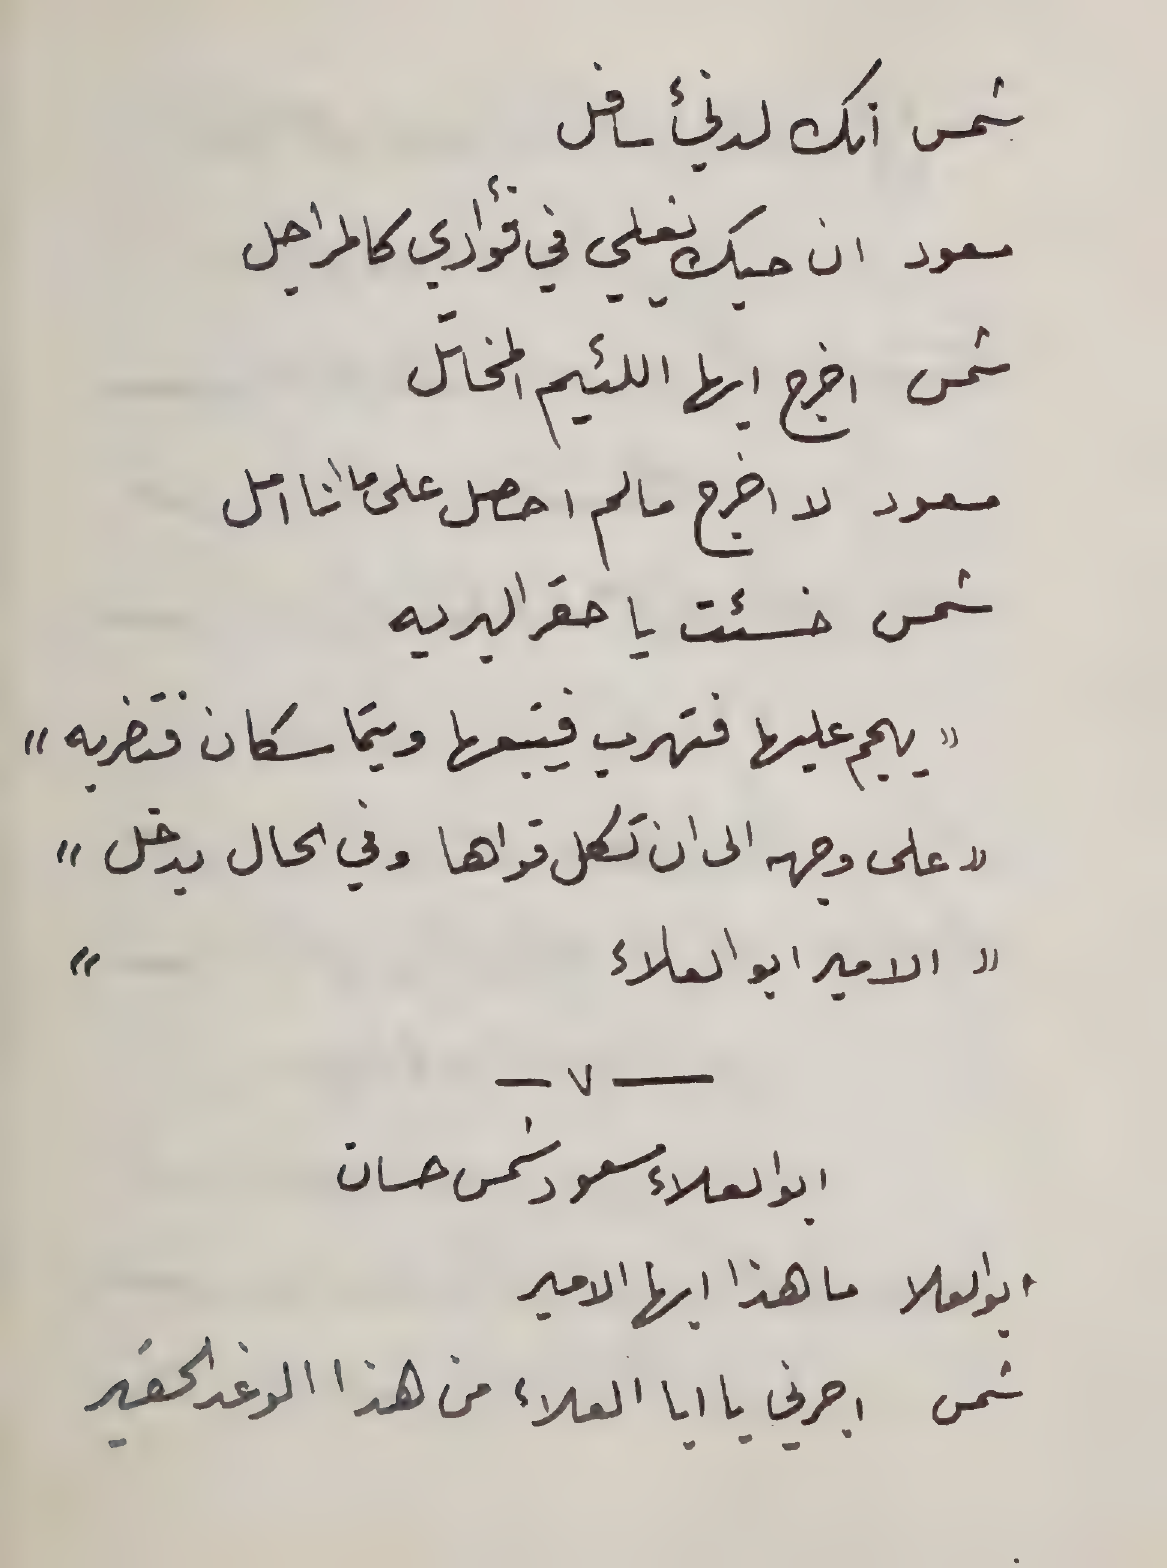 شمس انك لدنئ سافل
مسعود ان حبك يغلي في فؤادي كالمراجل
شمس اخرج ايها اللئيم المخاتل
مسعود لا اخرج مالم احصل على ما انا امل
شمس خسئت يا حقر البريه
« يهجم عليها فتهرب فيتبعها ويتماسكان فتضربه »
« على وجهه الى ان تكل قواها وفي الحال يدخل »
« الامير ابو العلاء »
— ٧ —
ابو العلاء مسعود شمس حسان
ابو العلا ما هذا ايها الامير
شمس اجرني يا ابا العلاء من هذا الوغد الحقير